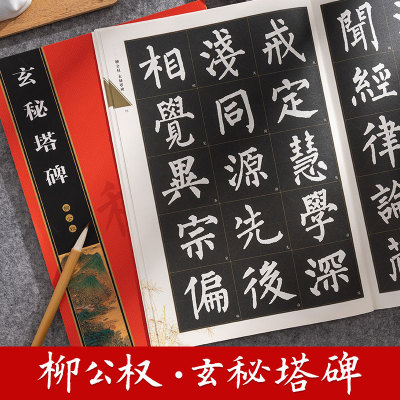 玄秘塔碑
聞經律論
戒定慧學深
淺同源先後
相覺異宗偏
柳公权·玄秘塔碑